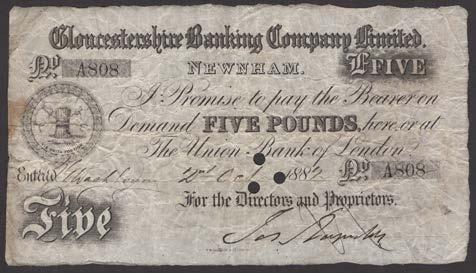 Gloucestershire Banking Company Limited.
No A808 NEWNHAM. £FIVE
I Promise to pay the Bearer on
Demand FIVE POUNDS, here, or at
The Union Bank of London.
Enterd 2nd Oct 1882 No A808
For the Directors and Proprietors.
Five